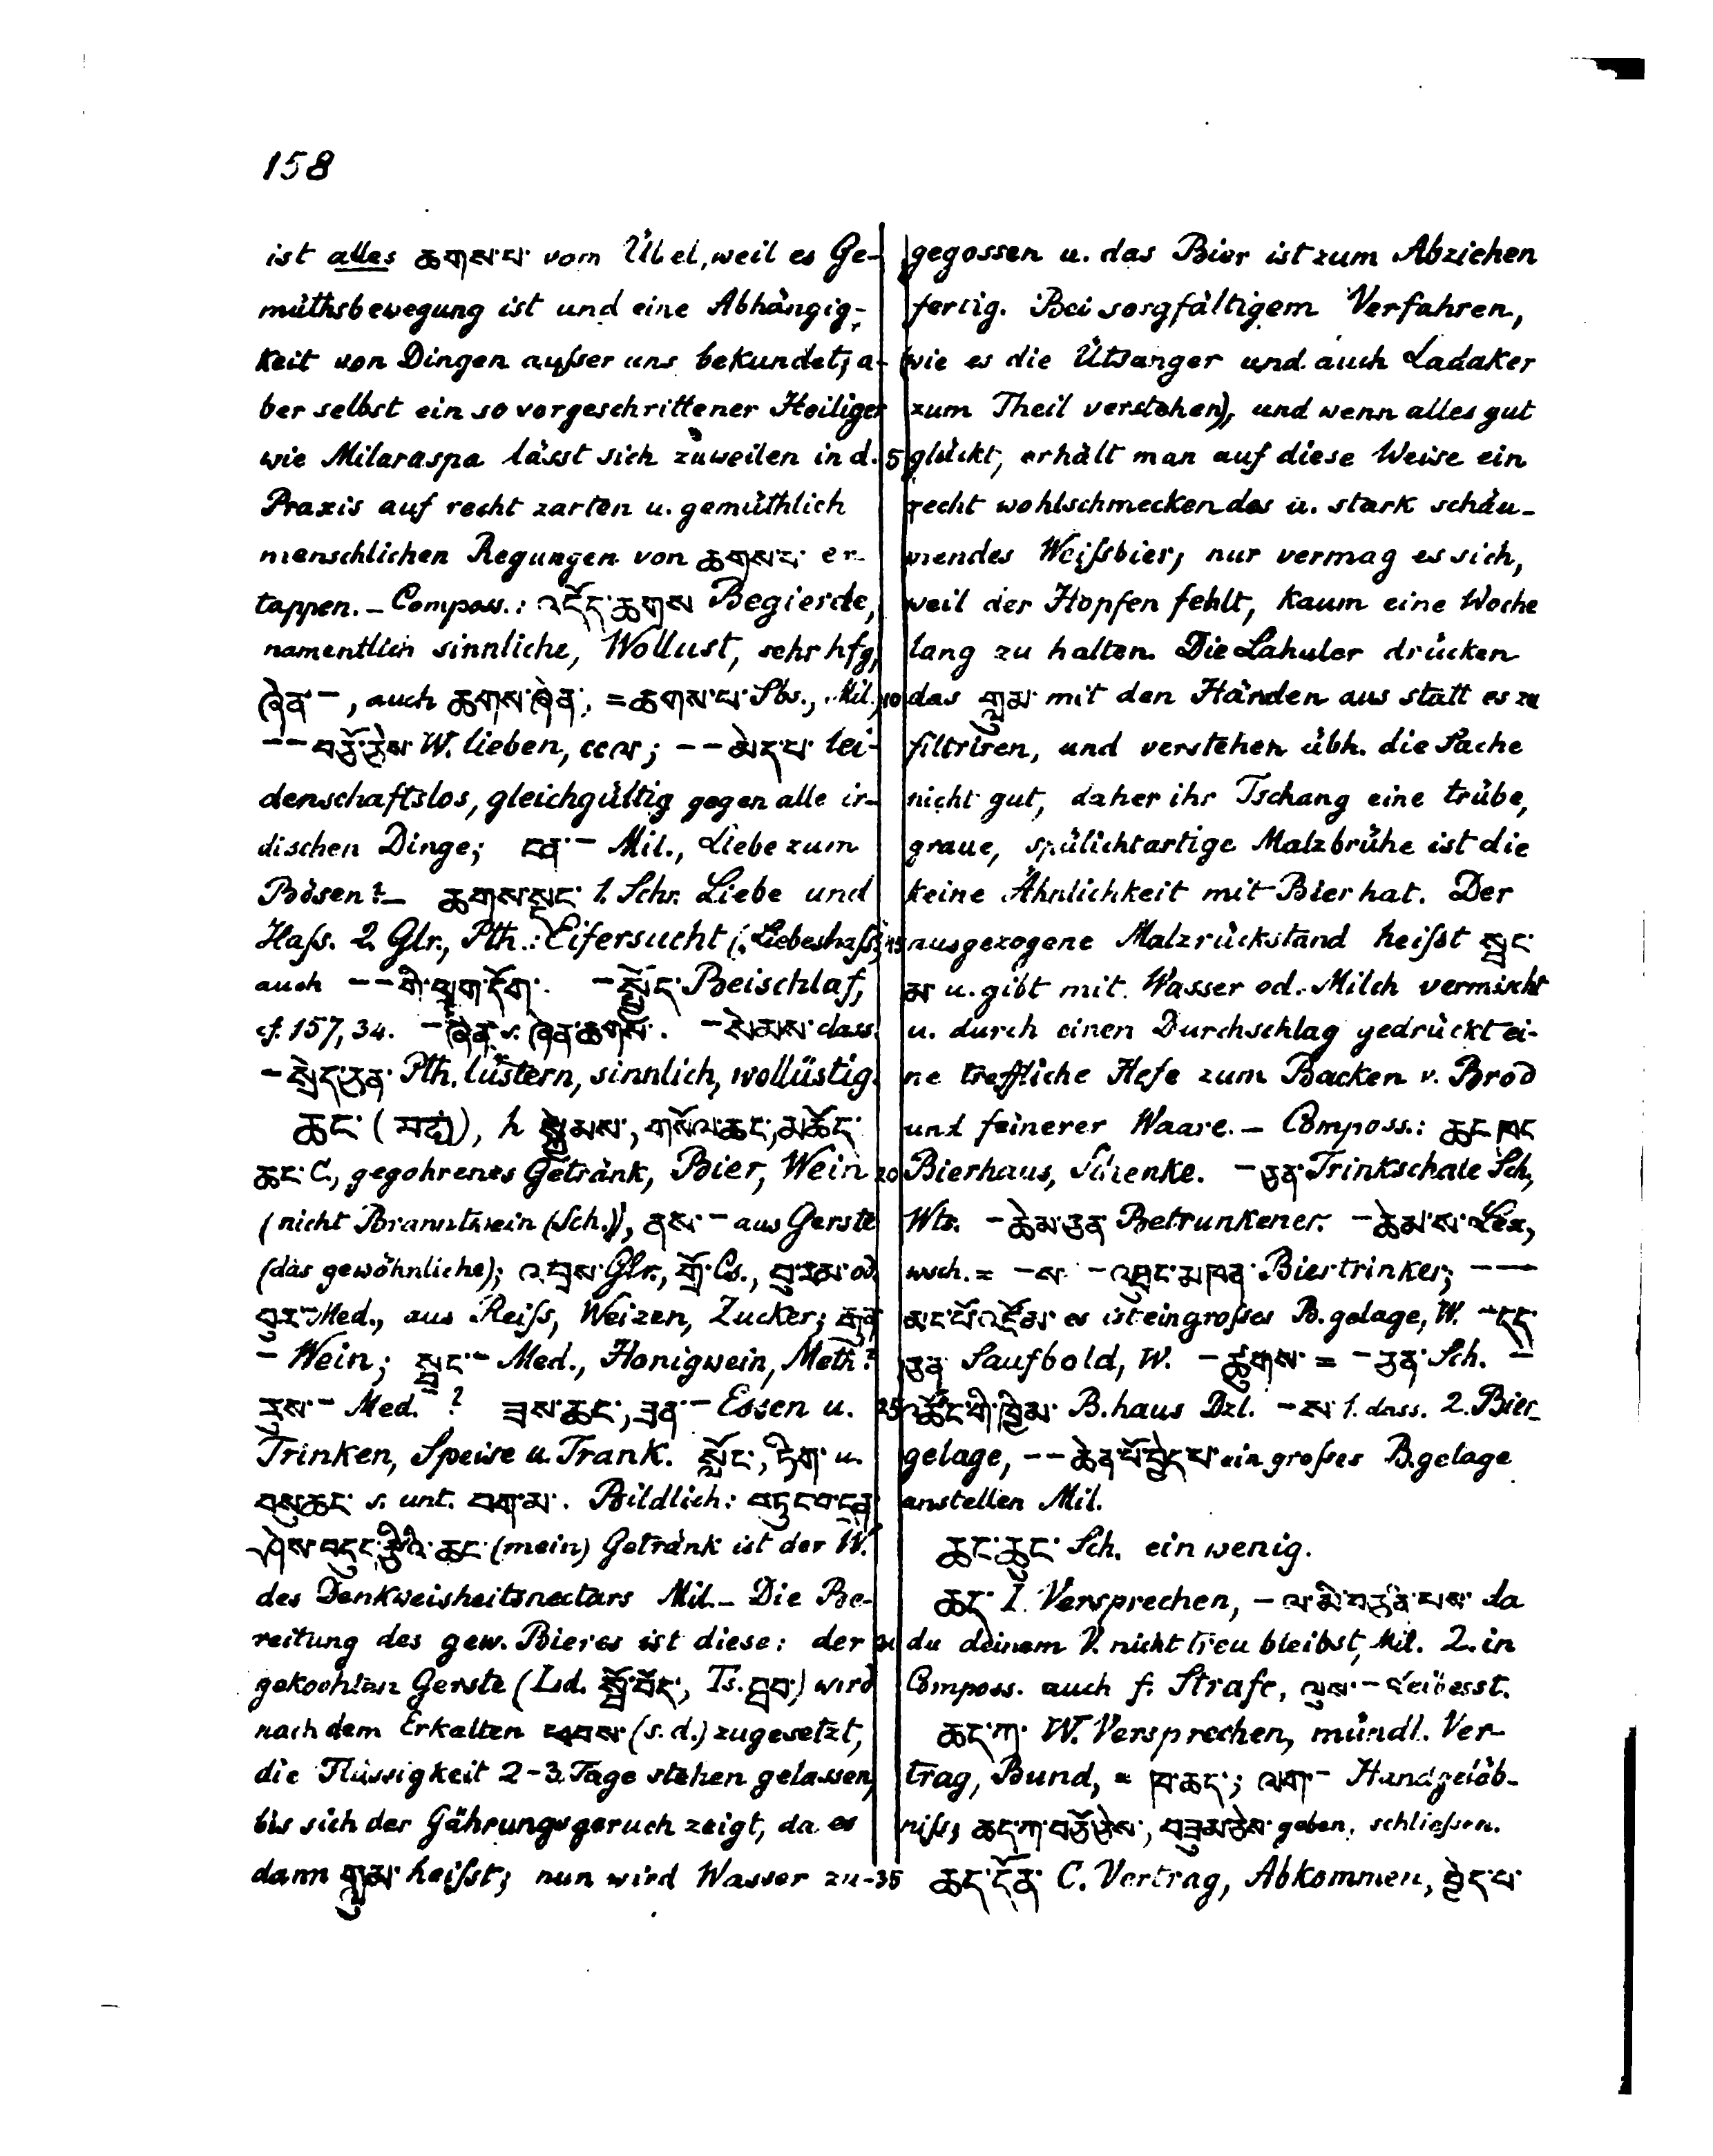 158
ist alles ཆགས་པ་ vom Übel, weil es Ge-
müthsbewegung ist und eine Abhängig-
keit von Dingen ausser uns bekundet; a-
ber selbst ein so vorgeschrittener Heiliger
wie Milaraspa lässt sich zuweilen in d.
Praxis auf recht zarten u. gemüthlich
menschlichen Regungen von ཆགས་པ་ er-
tappen. – Composs.: འདོད་ཆགས Begierde,
namentlich sinnliche, Wollust, sehr hfg,
ཞེན་ –, auch ཆགས་ཞེན་, = ཆགས་པ་ Sbs., Mil.
– – བཅོ་ཅེས་ W. lieben, cc ལ; – – མེད་པ་ lei-
denschaftslos, gleichgültig gegen alle ir-
dischen Dinge; ངན་ – Mil., Liebe zum
Bösen? – ཆགས་སྡང་ 1. Schr. Liebe und
Hass. 2. Glr., Pth.: Eifersucht (: Liebeshass),
auch – – གི་ཕྲག་དོག་. – སྤྱོད་ Beischlaf,
cf. 157, 34. – ཞེན་ s. ཞེན་ཆགས་. – སེམས་ dass.
– སྲེད་ཅན་ Pth. lüstern, sinnlich, wollüstig.
ཆང་ (मद्य), h སྐྱེམས་, གསོལ་ཆང་, མཆོད་
ཆང་ C., gegohrenes Getränk, Bier, Wein
(nicht Branntwein (Sch.)), ནས་ – aus Gerste
(das gewöhnliche); འབྲས་ Glr., གྲོ་ Cs., བུ་རམ་ od.
བུར་ – Med., aus Reiss, Weizen, Zucker; རྒུན་
– Wein; སྦྲང་ – Med., Honigwein, Meth?
རུས་ – Med.? ཟས་ཆང་, ཟན་ – Essen u.
Trinken, Speise u. Trank. སློང་, རྟིག་ u.
བསུ་ཆང་ s. unt. བག་མ་. Bildlich: བཏུང་བ་དྲན་
ཤེས་བདུད་རྩིའི་ཆང་ (mein) Getränk ist der W.
des Denkweisheitsnectars Mil. – Die Be-
reitung des gew. Bieres ist diese: der
gekochten Gerste (Ld. སྦོ་བོད་, Ts. ) wird
nach dem Erkalten ཕབས་ (s. d.) zugesetzt,
die Flüssigkeit 2–3 Tage stehen gelassen,
bis sich der Gährungsgeruch zeigt, da es
dann གླུམ་ heisst; nun wird Wasser zu-
gegossen u. das Bier ist zum Abziehen
fertig. Bei sorgfältigem Verfahren,
(wie es die Ütsanger und auch Ladaker
zum Theil verstehen), und wenn alles gut
5 glückt, erhält man auf diese Weise ein
recht wohlschmeckendes u. stark schäu-
mendes Weissbier, nur vermag es sich,
weil der Hopfen fehlt, kaum eine Woche
lang zu halten. Die Lahuler drücken
10 das གླུམ་ mit den Händen aus statt es zu
filtriren, und verstehen übh. die Sache
nicht gut, daher ihr Tschang eine trübe,
graue, spülichtartige Malzbrühe ist die
keine Ähnlichkeit mit Bier hat. Der
15 ausgezogene Malzrückstand heisst སྦང་
མ་ u. gibt mit Wasser od. Milch vermischt
u. durch einen Durchschlag gedrückt ei-
ne treffliche Hefe zum Backen v. Brod
und feinerer Waare. – Composs.: ཆང་ཁང
20 Bierhaus, Schenke. – ཅན་ Trinkschale Sch.,
Wts. – ཆེམ་ཅན Betrunkener. – ཆེམ་ས་ Lex.,
wsch. = – ས་ – འཐུང་མཁན་ Biertrinker; – –
མང་པོ་འཛོམ་ es ist ein grosses B.gelage, W. – དད་
ཅན Saufbold, W. – ཚུགས་ = – ཅན་ Sch. –
25 འཚོང་གི་ཁྱིམ་ B.haus Dzl. – ས་ 1. dass. 2. Bier-
gelage, – – ཆེན་པོ་བྱེད་པ་ ein grosses B.gelage
anstellen Mil.
ཆང་ཆུང་ Sch. ein wenig.
ཆད་ I. Versprechen, – ལ་མི་བརྩི་བས་ da
du deinem V. nicht treu bleibst, Mil. 2. in
Composs. auch f. Strafe, ལུས་ – Leibesst.
ཆད་ཀ་ W. Versprechen, mündl. Ver-
trag, Bund, = ཁ་ཆད་; ལག་ – Handgelöb-
niss; ཆད་ཀ་བཅོ་ཅེས་, བཟུམ་ཅེས་ geben, schliessen.
35 ཆད་དོན་ C. Vertrag, Abkommen, བྱེད་པ་